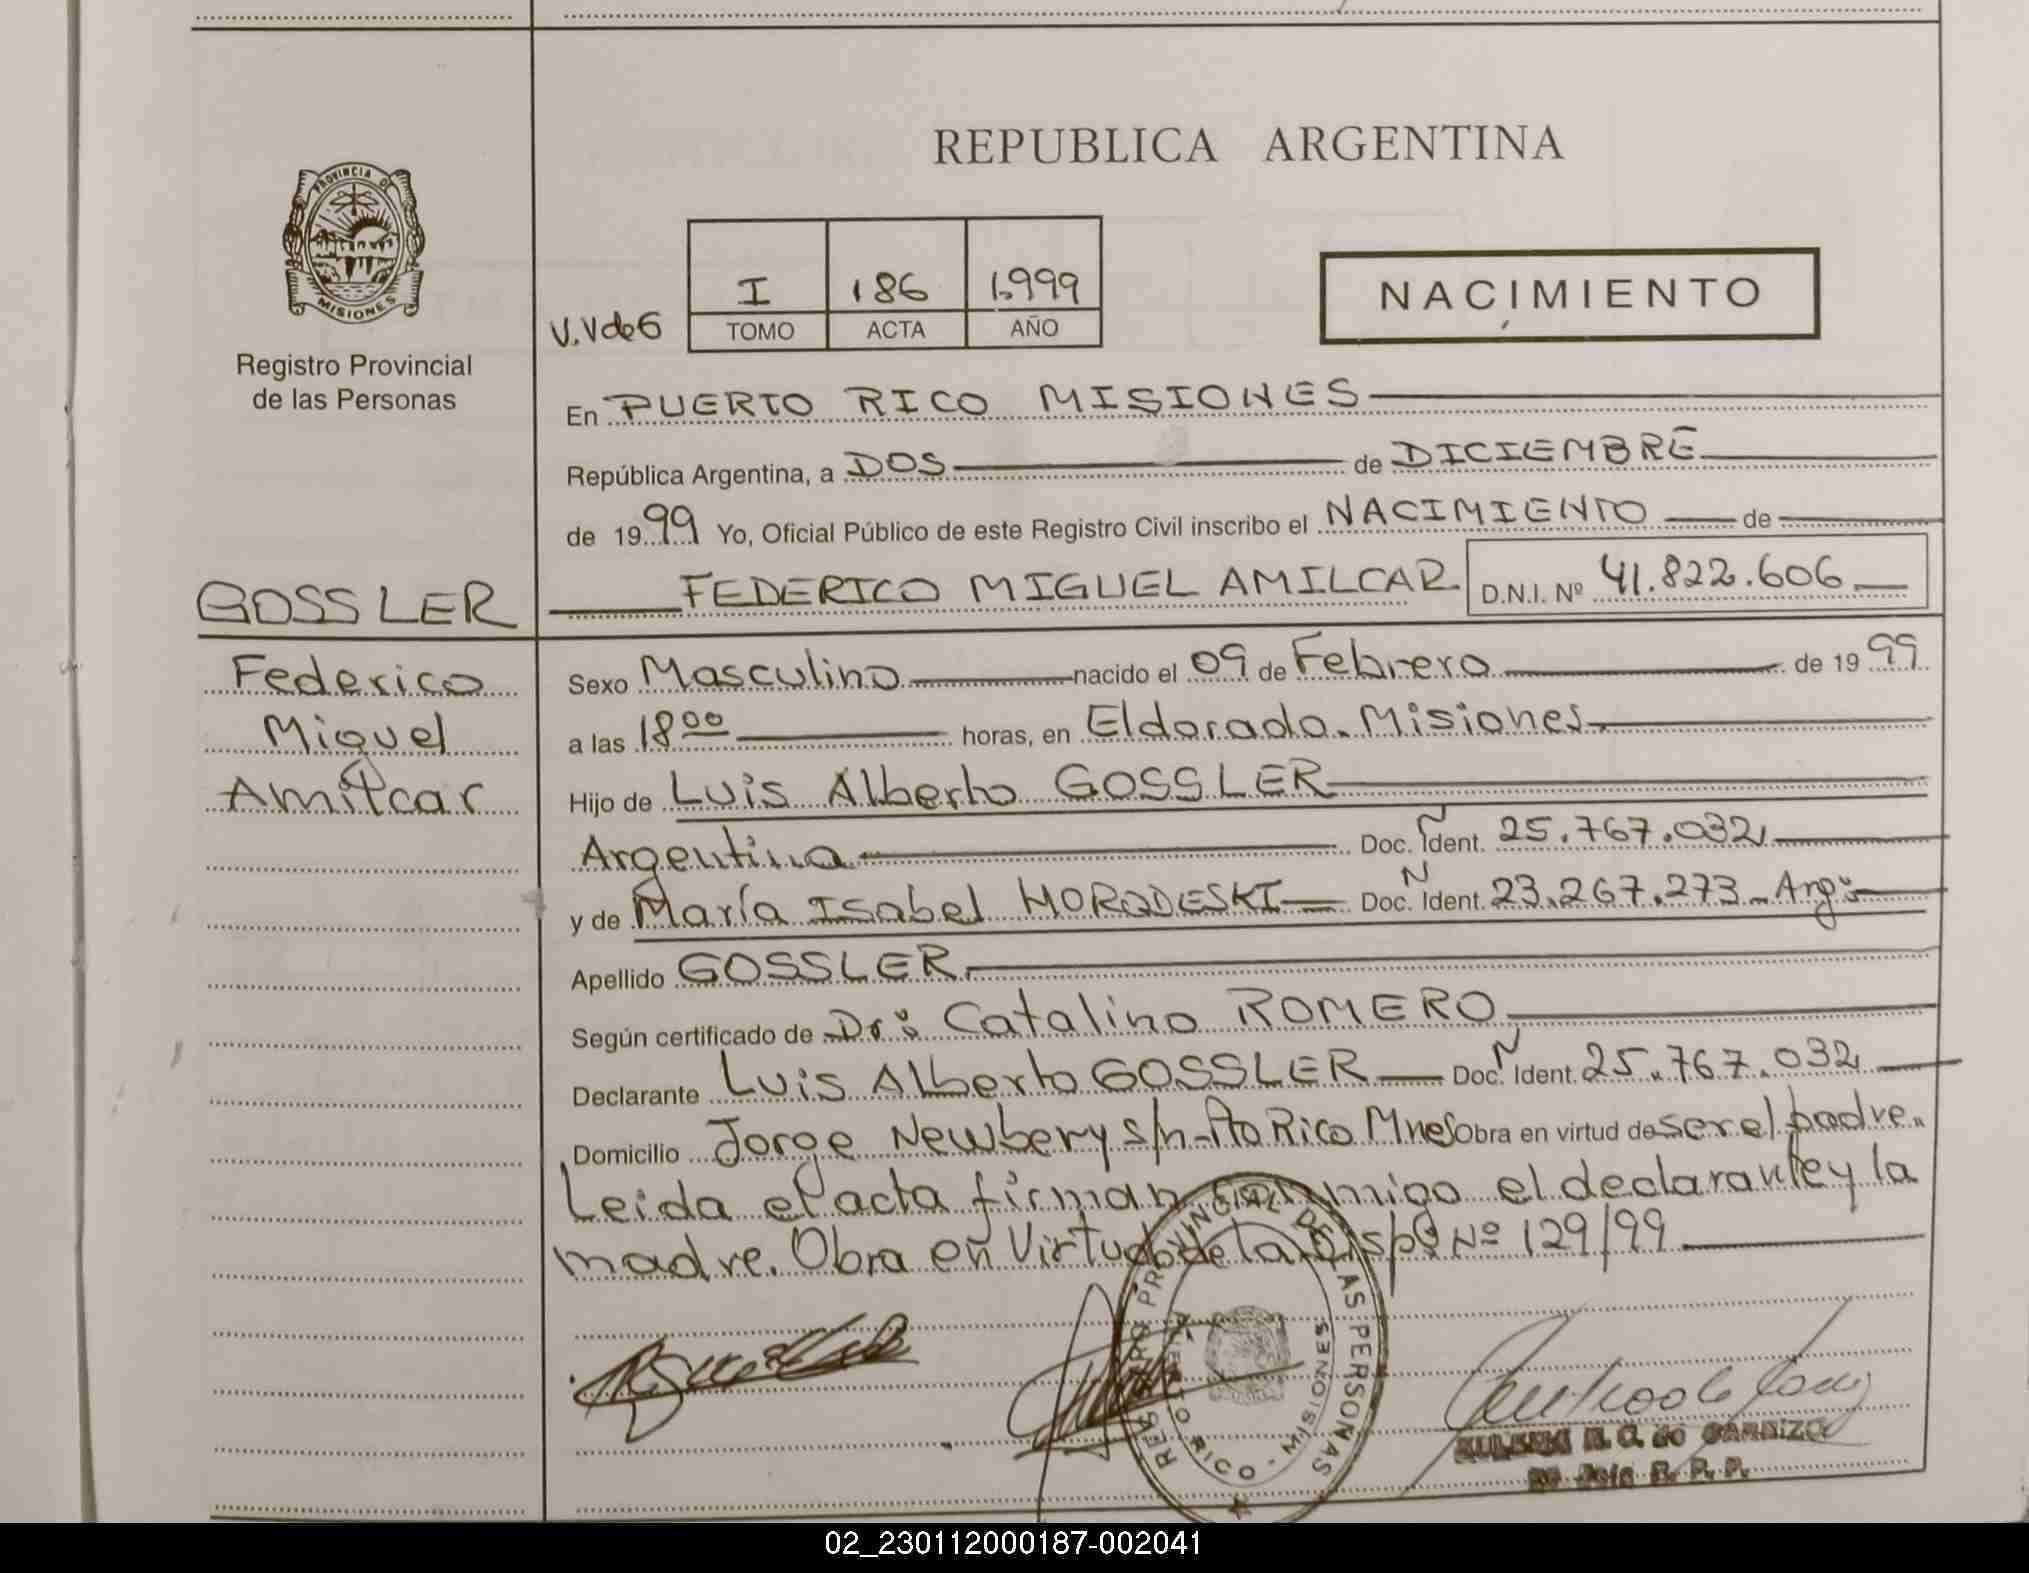 REPUBLICA ARGENTINA
PROVINCIA DE
MISIONES
Registro Provincial
de las Personas
V.V de 6
I 186 1.999
TOMO ACTA AÑO
NACIMIENTO
En PUERTO RICO MISIONES
República Argentina, a DOS de DICIEMBRE
de 1999 Yo, Oficial Público de este Registro Civil inscribo el NACIMIENTO de
FEDERICO MIGUEL AMILCAR D.N.I. Nº 41.822.606
GOSSLER
Federico
Miguel
Amilcar
Sexo Masculino nacido el 09 de Febrero de 1999
a las 18ºº horas, en Eldorado. Misiones.
Hijo de Luis Alberto GOSSLER
Argentina Doc. Ident. 25.767.032
y de María Isabel MORODESKI Doc. Ident. 23.267.273 Arg.
Apellido GOSSLER.
Según certificado de Dr. Catalino ROMERO
Declarante Luis Alberto GOSSLER Doc. Ident. 25.767.032
Domicilio Jorge Newbery s/n - Pto Rico Mnes Obra en virtud de ser el padre.
Leida el acta firman conmigo el declarante y la
madre. Obra en Virtud de la Disp. Nº 129/99
REGISTRO PROVINCIAL DE LAS PERSONAS
PUERTO RICO - MISIONES
02_230112000187-002041